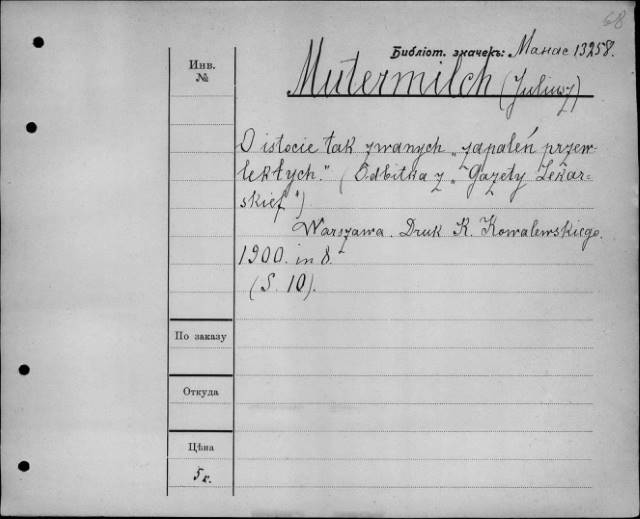 68
Библіот. значекъ: Манас 13258.
Инв.
№
Mutermilch (Juliusz)
O istocie tak zwanych „zapaleń przew-
lekłych." (Odbitka z „Gazety Lekar-
skiej")
Warszawa. Druk K. Kowalewskiego.
1900. in 8.
(S. 10).
По заказу
Откуда
Цѣна
5 к.